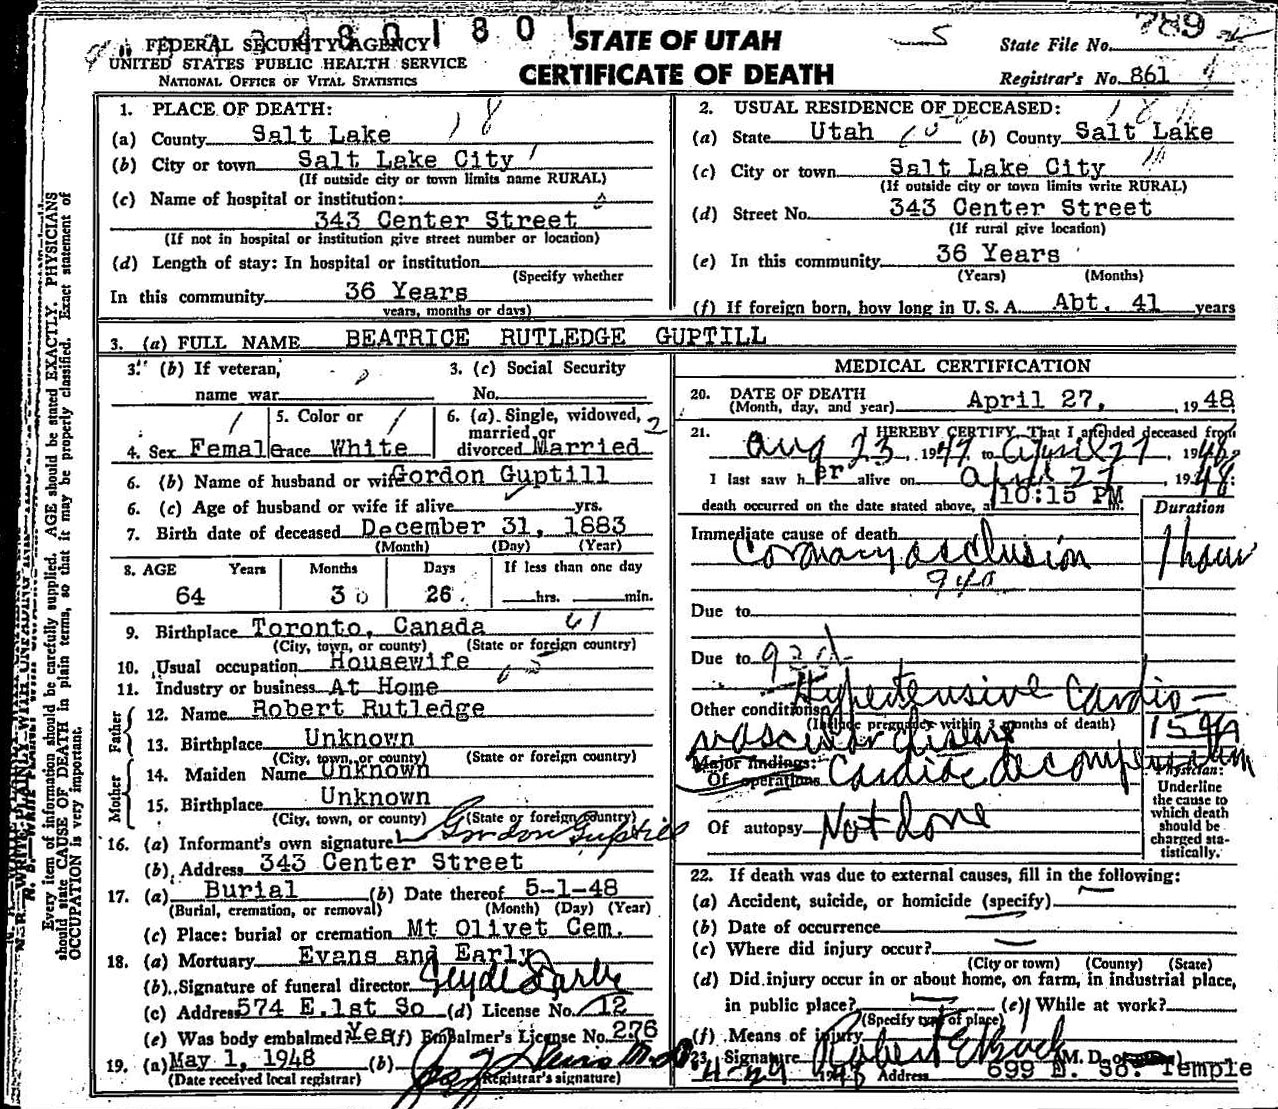 1801801
FEDERAL SECURITY AGENCY
UNITED STATES PUBLIC HEALTH SERVICE
NATIONAL OFFICE OF VITAL STATISTICS
STATE OF UTAH
CERTIFICATE OF DEATH
State File No. 789
Registrar's No. 861
1. PLACE OF DEATH:
(a) County Salt Lake
(b) City or town Salt Lake City
(If outside city or town limits name RURAL)
(c) Name of hospital or institution:
343 Center Street
(If not in hospital or institution give street number or location)
(d) Length of stay: In hospital or institution
(Specify whether
In this community 36 Years
years, months or days)
2. USUAL RESIDENCE OF DECEASED:
(a) State Utah (b) County Salt Lake
(c) City or town Salt Lake City
(If outside city or town limits write RURAL)
(d) Street No. 343 Center Street
(If rural give location)
(e) In this community 36 Years
(Years) (Months)
(f) If foreign born, how long in U. S. A. Abt. 41 years
3. (a) FULL NAME BEATRICE RUTLEDGE GUPTILL
3. (b) If veteran, name war
3. (c) Social Security No.
4. Sex Female
5. Color or race White
6. (a) Single, widowed, married, or divorced Married
6. (b) Name of husband or wife Gordon Guptill
6. (c) Age of husband or wife if alive yrs.
7. Birth date of deceased December 31, 1883
(Month) (Day) (Year)
8. AGE Years Months Days If less than one day
64 3 26 hrs. min.
9. Birthplace Toronto, Canada 61
(City, town, or county) (State or foreign country)
10. Usual occupation Housewife
11. Industry or business At Home
Father
12. Name Robert Rutledge
13. Birthplace Unknown
(City, town, or county) (State or foreign country)
Mother
14. Maiden Name Unknown
15. Birthplace Unknown
(City, town, or county) (State or foreign country)
16. (a) Informant's own signature Gordon Guptill
(b) Address 343 Center Street
17. (a) Burial (b) Date thereof 5-1-48
(Burial, cremation, or removal) (Month) (Day) (Year)
(c) Place: burial or cremation Mt Olivet Cem.
18. (a) Mortuary Evans and Early
(b) Signature of funeral director
(c) Address 574 E.1st So (d) License No. 12
(e) Was body embalmed Yes (f) Embalmer's License No. 276
19. (a) May 1, 1948 (b)
(Date received local registrar) (Registrar's signature)
MEDICAL CERTIFICATION
20. DATE OF DEATH
(Month, day, and year) April 27, , 1948
21. I HEREBY CERTIFY, That I attended deceased from
Aug 23 1947 to April 27, 1948
I last saw her alive on April 27, 1948:
death occurred on the date stated above, at 10:15 PM m.
Duration
Immediate cause of death
Coronary occlusion 1 hour
94a
Due to
Due to 93d
Hypertensive Cardio-
Other conditions
(Include pregnancy within 3 months of death)
vascular disease
Major findings:
Of operations Cardiac decompensation
Of autopsy Not done
Physician:
Underline
the cause to
which death
should be
charged sta-
tistically.
22. If death was due to external causes, fill in the following:
(a) Accident, suicide, or homicide (specify)
(b) Date of occurrence
(c) Where did injury occur?
(City or town) (County) (State)
(d) Did injury occur in or about home, on farm, in industrial place,
in public place? (e) While at work?
(Specify type of place)
(f) Means of injury
23. Signature (M. D. or
4-29 1948 Address 699 E. So. Temple
Every item of information should be carefully supplied. AGE should be stated EXACTLY. PHYSICIANS
should state CAUSE OF DEATH in plain terms, so that it may be properly classified. Exact statement of
OCCUPATION is very important.